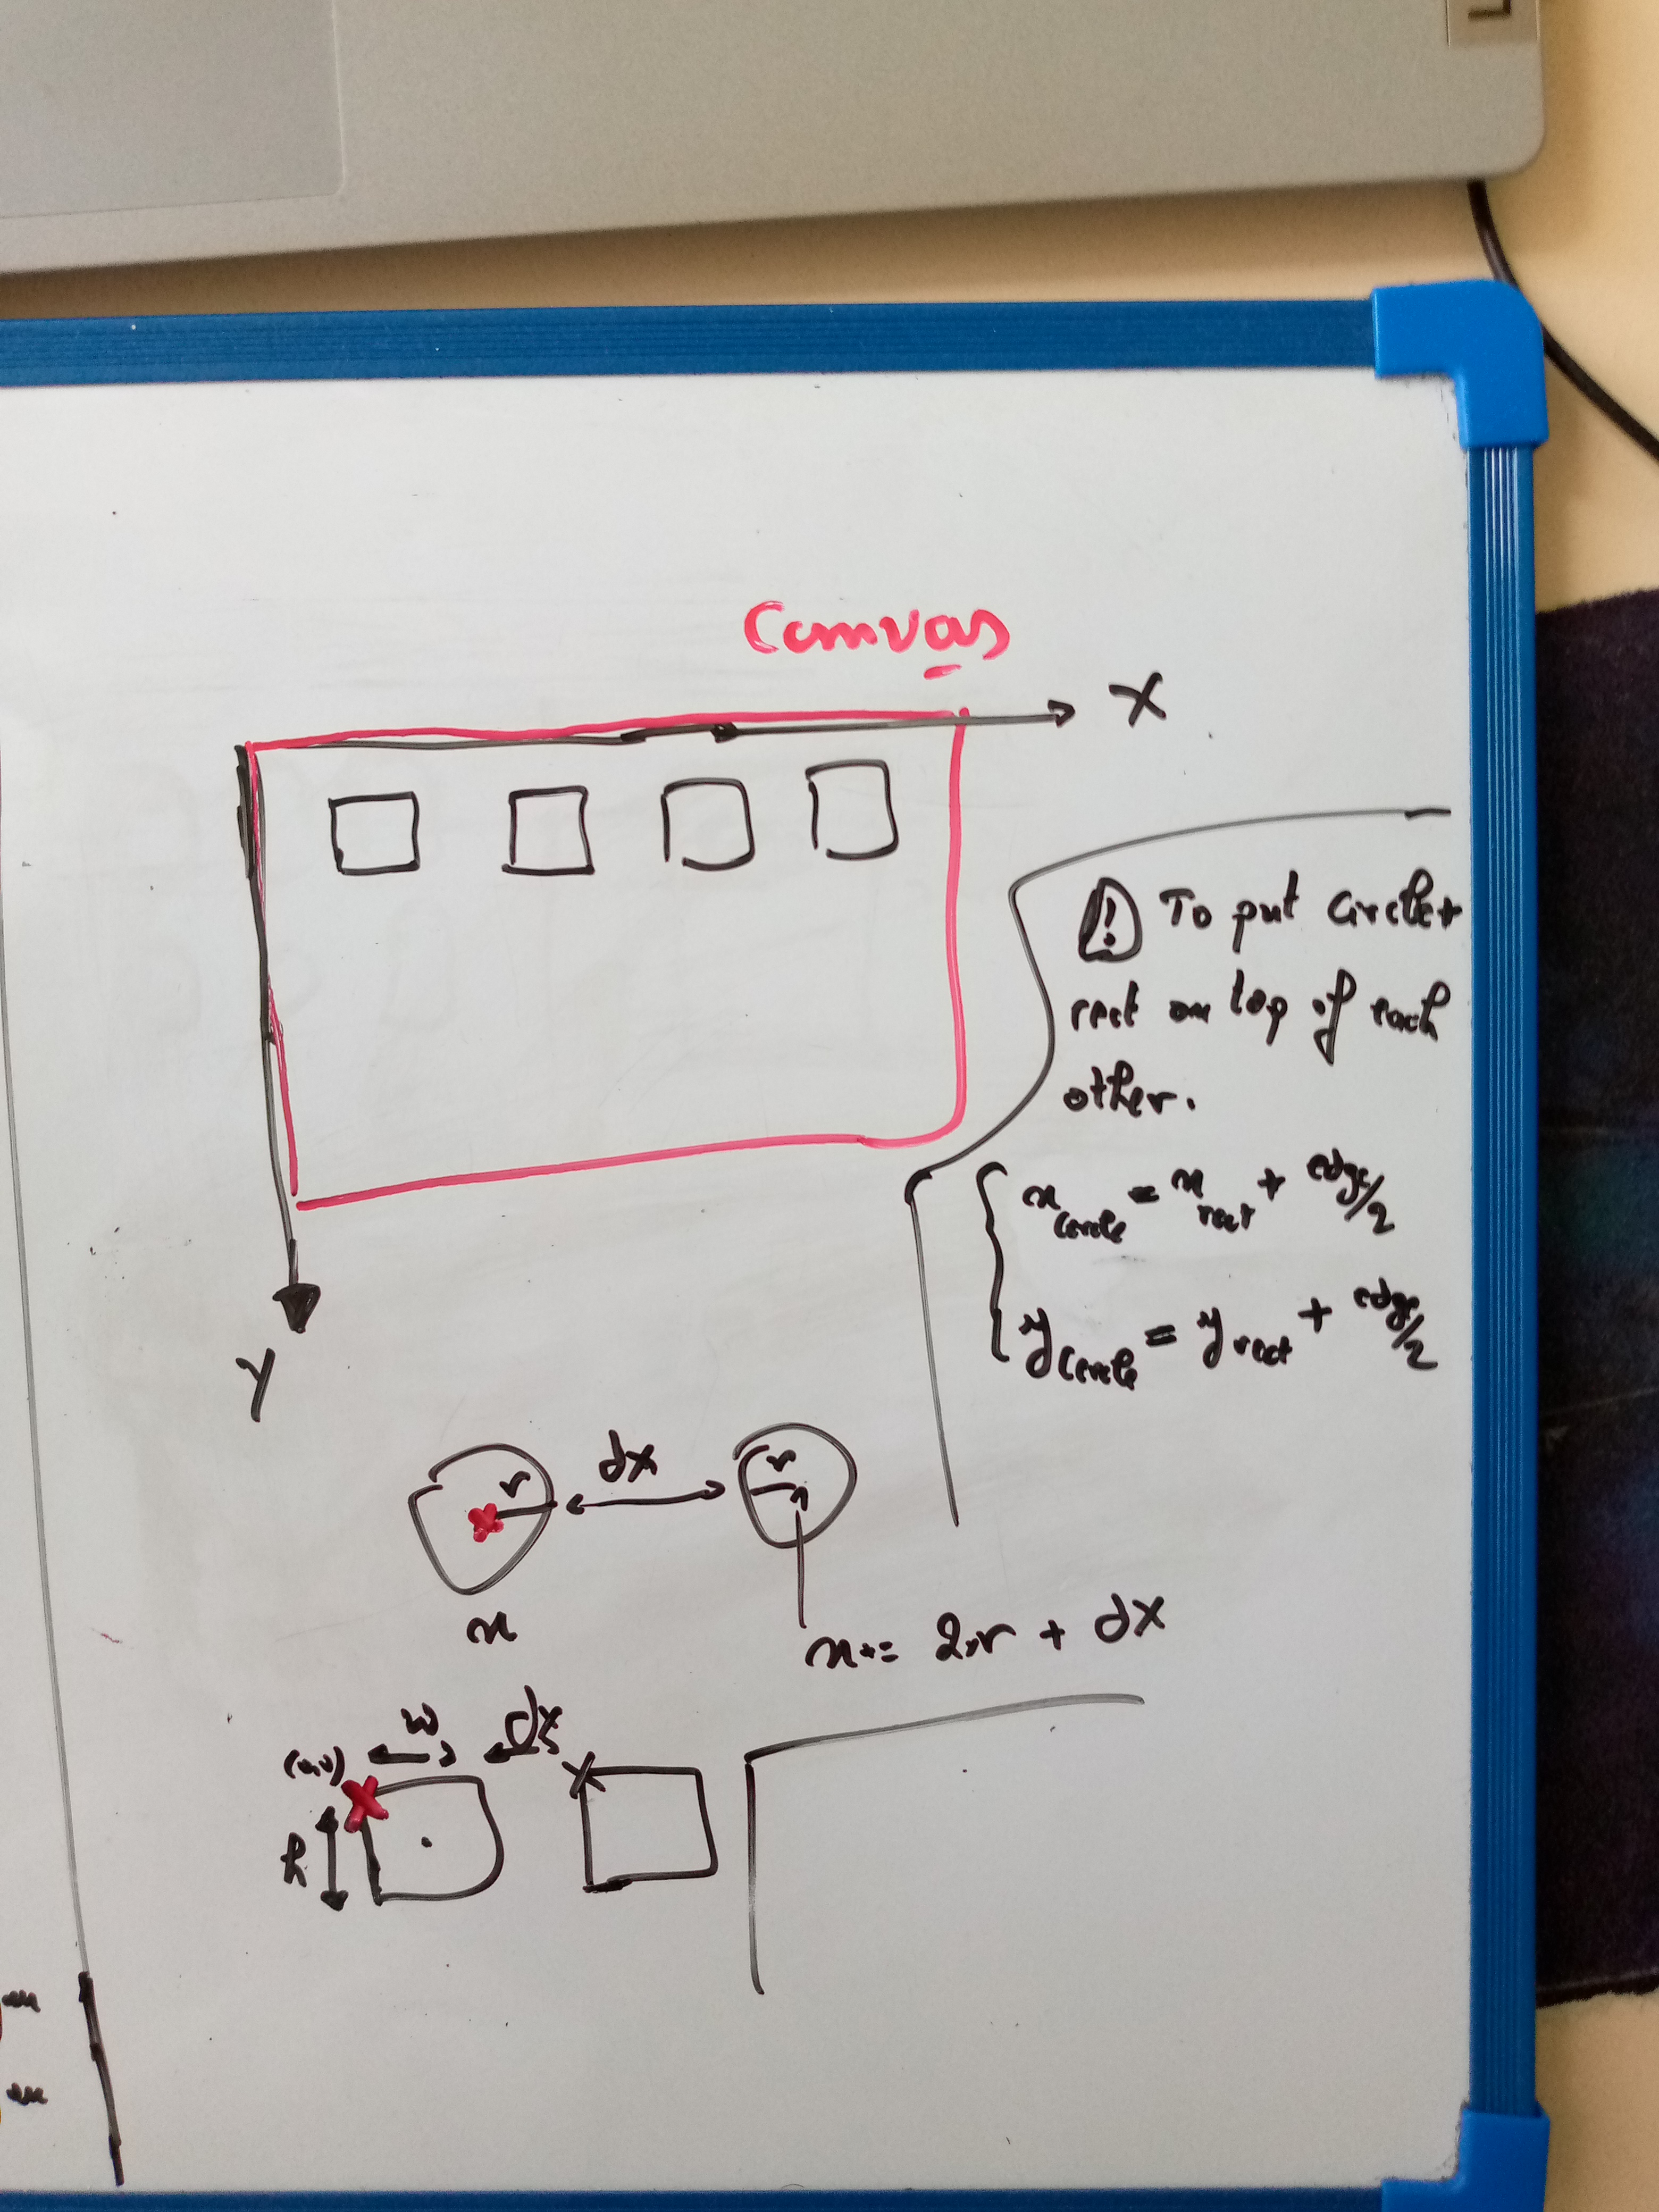 Canvas
X
Y
! To put circle +
rect on top of each
other.
x circle = x rect + edge/2
y circle = y rect + edge/2
r
dx
r
x
x += 2.r + dx
w
dx
h